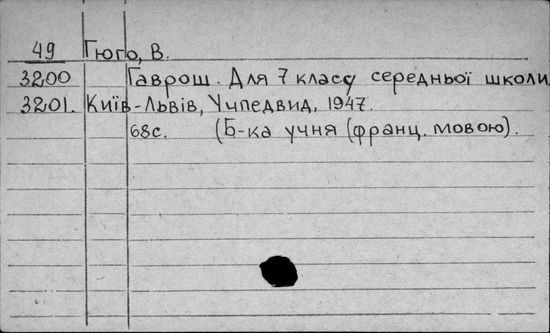 49 Гюго, В.
3200 Гаврош. Для 7 класу середньої школи
3201. Київ-Львів, Учпедвид, 1947.
68с. (Б-ка учня (франц. мовою).